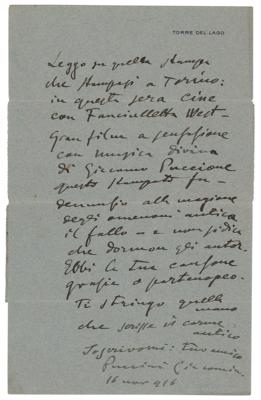 TORRE DEL LAGO
Leggo su quella Stampa
che stampasi a Torino:
in questa sera cine
con Fanciulletta West—
Gran film a sensazione
con musica divina
di Giacomo Puccione
questo stampato fu—
denunzio alla magione
degli omenoni antica
il fallo — e non si dica
che dorman gli autor.
Ebbi la tua canzone
grazie o partenopeo.
Ti stringo quella
mano
che scrisse il carme
antico
tuo amico
Puccini Giacomin
16 nov 916